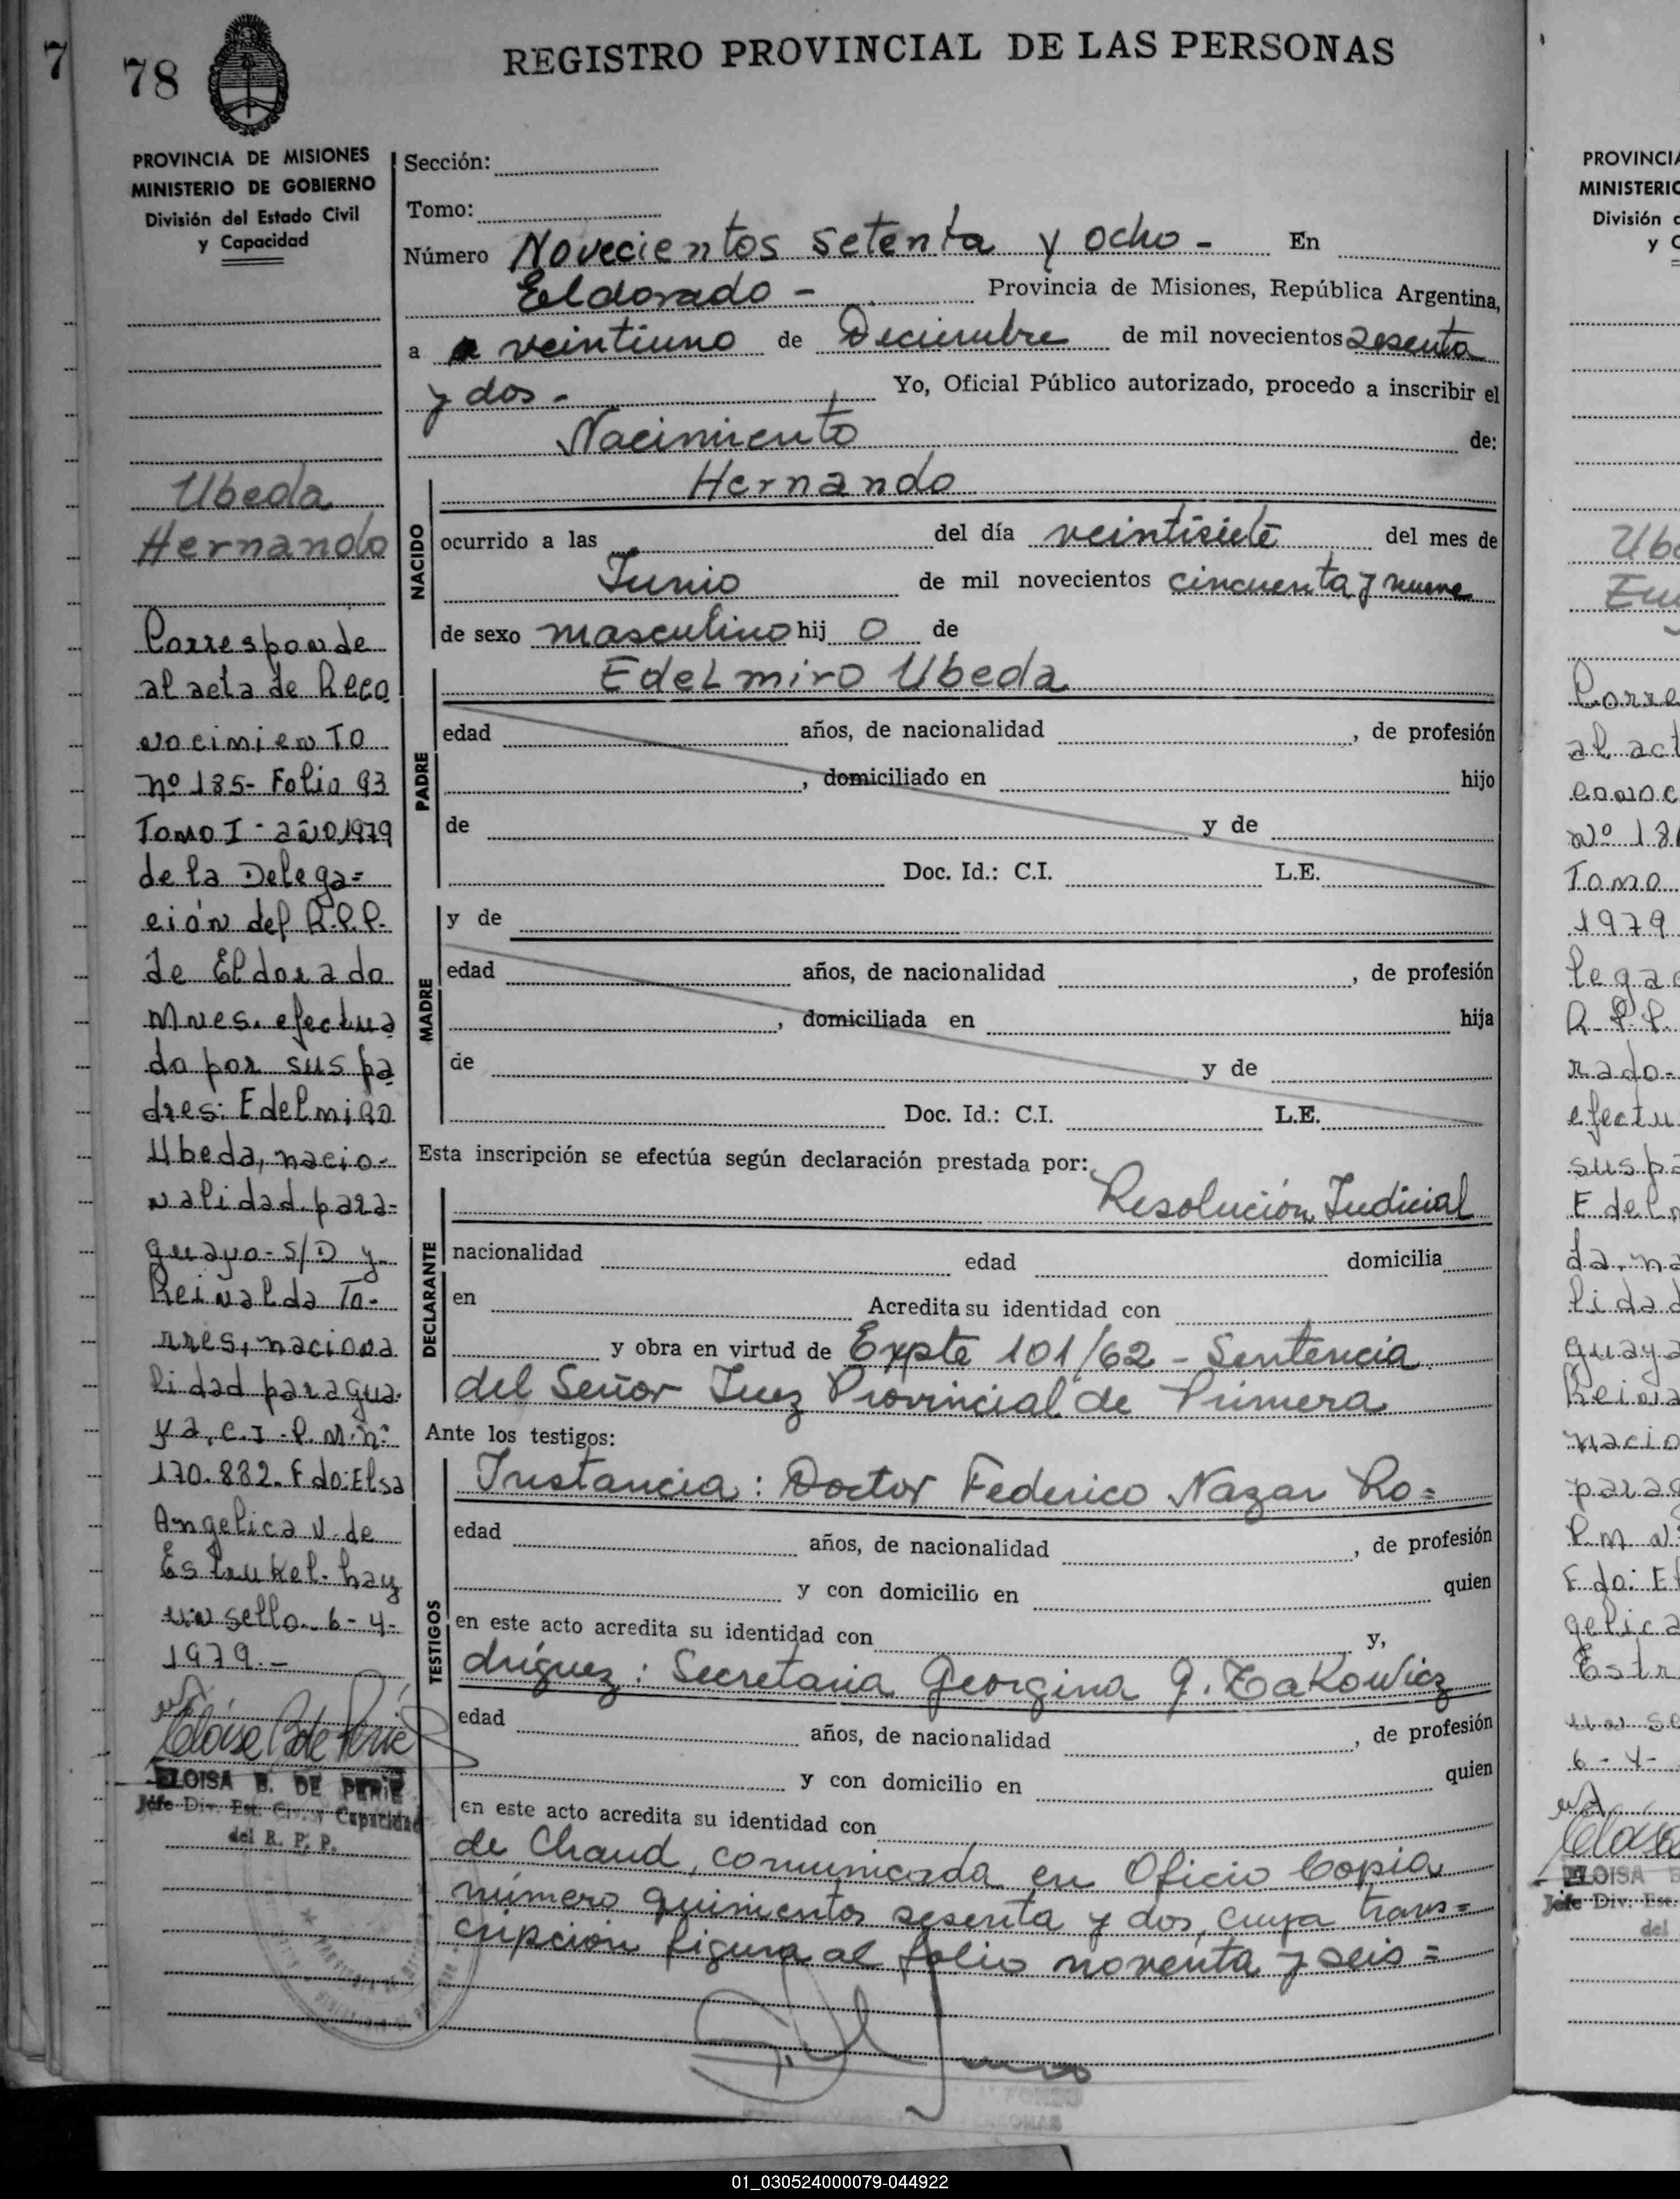 7
78
REGISTRO PROVINCIAL DE LAS PERSONAS
PROVINCIA DE MISIONES
MINISTERIO DE GOBIERNO
División del Estado Civil
y Capacidad
Ubeda
Hernando
Corresponde
al acta de Reco
nocimiento
nº 185- Folio 93
Tomo I - año 1979
de la Delega=
ción del R.P.P.
de Eldorado
Mnes. efectua
do por sus pa
dres: Edelmiro
Ubeda, nacio-
nalidad para=
guayo- S/D y
Reinalda To-
rres, naciona
lidad paragua
ya, C.I.-P.M.nº
170.832. Fdo: Elsa
Angelica V. de
Estrukel- hay
un sello. 6-4-
1979.-
ELOISA B. DE PERIÉ
Jefe Div. Est. Civ. y Capacidad
del R. P. P.
Sección:
Tomo:
Número Novecientos setenta y ocho - En
Eldorado - Provincia de Misiones, República Argentina,
a veintiuno de Deciembre de mil novecientos sesenta
y dos - Yo, Oficial Público autorizado, procedo a inscribir el
Nacimiento de:
NACIDO
Hernando
ocurrido a las del día veintisiete del mes de
Junio de mil novecientos cincuenta y nueve
de sexo masculino hij o de
PADRE
Edelmiro Ubeda
edad años, de nacionalidad , de profesión
, domiciliado en hijo
de y de
Doc. Id.: C.I. L.E.
MADRE
y de
edad años, de nacionalidad , de profesión
, domiciliada en hija
de y de
Doc. Id.: C.I. L.E.
Esta inscripción se efectúa según declaración prestada por:
DECLARANTE
Resolución Judicial
nacionalidad edad domicilia
en Acredita su identidad con
y obra en virtud de Expte 101/62 - Sentencia
del Señor Juez Provincial de Primera
Ante los testigos:
TESTIGOS
Instancia: Doctor Federico Nazar Ro=
edad años, de nacionalidad , de profesión
y con domicilio en quien
en este acto acredita su identidad con y,
dríguez: Secretaria Georgina G. Zakowicz
edad años, de nacionalidad , de profesión
y con domicilio en quien
en este acto acredita su identidad con
de Chaud, comunicada en Oficio Copia
número quinientos sesenta y dos, cuya trans=
cripción figura al folio noventa y seis =
PROVINCIA
MINISTERIO
División d
y C
Ube
Corre
al act
conoc
Nº 18
Tomo
1979
legac
R.P.P.
rado-
efectu
sus pa
Edelm
da, na
lidad
guaya
Reina
nacio
parag
P.M.
Fdo: El
gelica
Estr
un se
6-4-
ELOISA B
Jefe Div. Est.
del
01_030524000079-044922